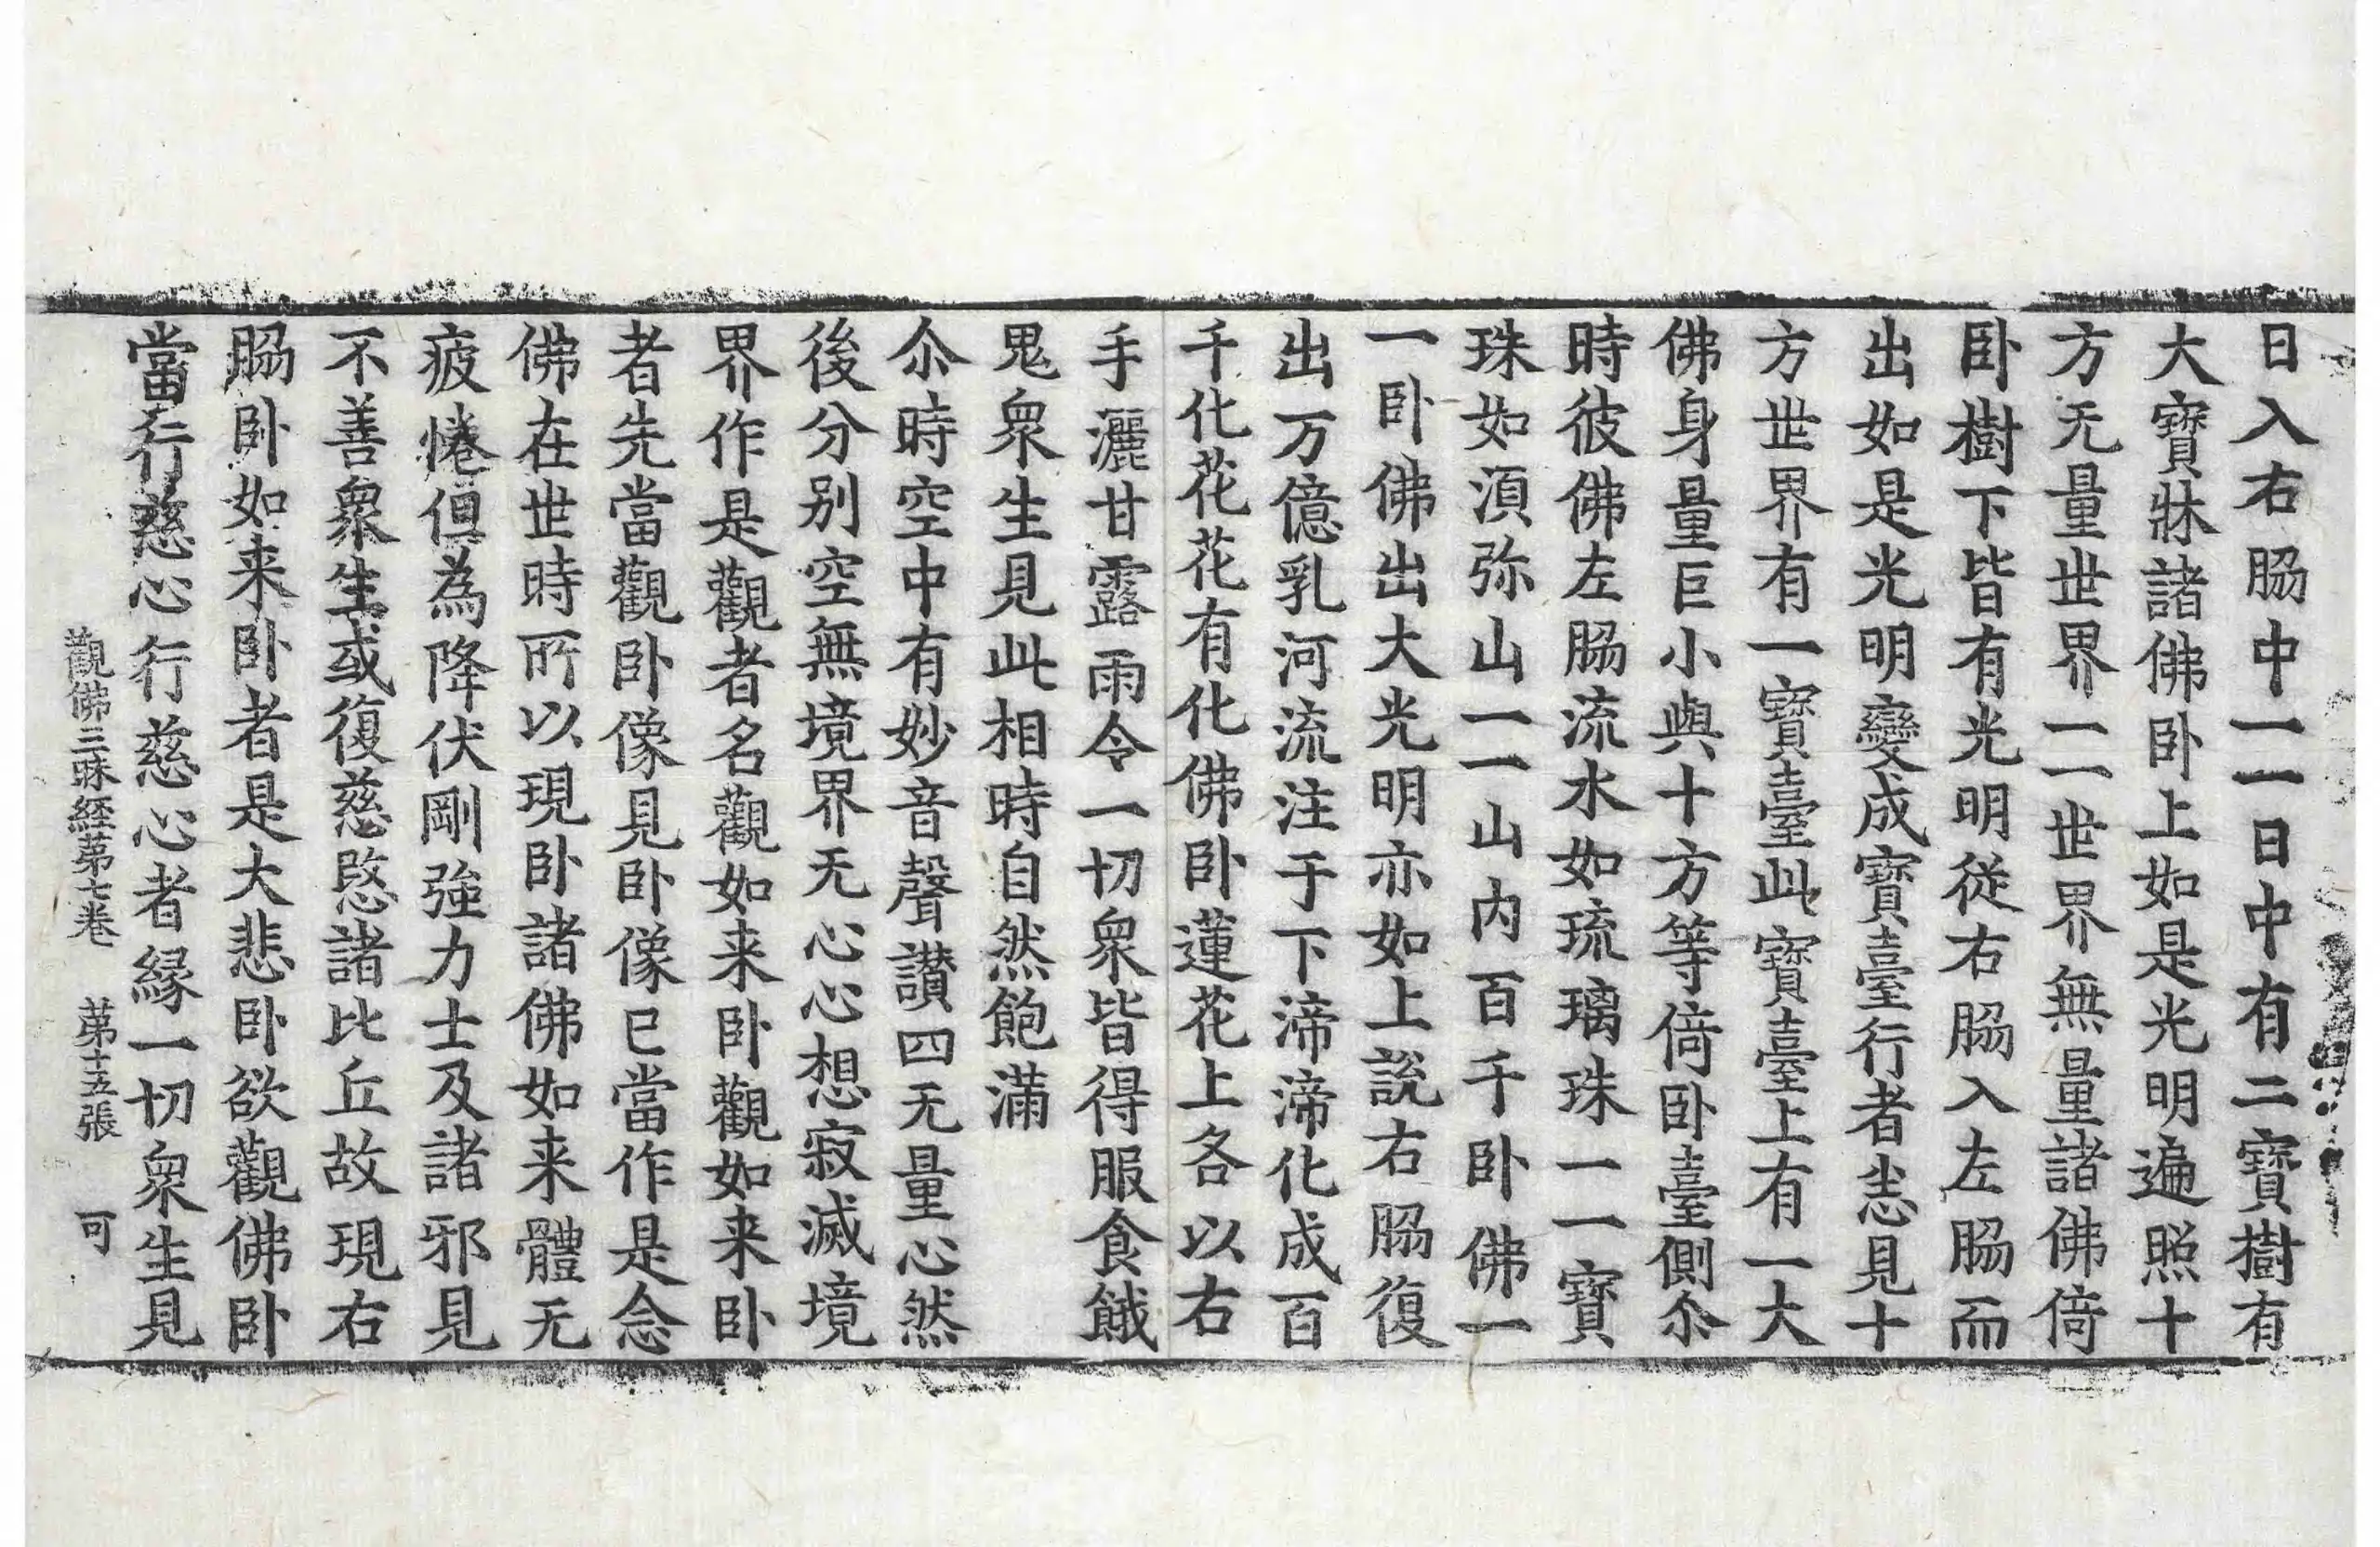 日入右脇中一一日中有二寶樹有
大寶牀諸佛卧上如是光明遍照十
方无量世界一一世界無量諸佛倚
卧樹下皆有光明從右脇入左脇而
出如是光明變成寶臺行者悉見十
方世界有一寶臺此寶臺上有一大
佛身量巨小與十方等倚卧臺側尒
時彼佛左脇流水如琉璃珠一一寶
珠如湏弥山一一山内百千卧佛一
一卧佛出大光明亦如上說右脇復
出万億乳河流注于下渧渧化成百
千化花花有化佛卧蓮花上各以右
手灑甘露雨令一切衆皆得服食餓
鬼衆生見此相時自然飽滿
尒時空中有妙音聲讃四无量心然
後分别空無境界无心心想寂滅境
界作是觀者名觀如来卧觀如来卧
者先當觀卧像見卧像已當作是念
佛在世時所以現卧諸佛如来體无
疲惓但為降伏剛強力士及諸邪見
不善衆生或復慈愍諸比丘故現右
脇卧如来卧者是大悲卧欲觀佛卧
當行慈心行慈心者縁一切衆生見
觀佛三昧経苐七巻　苐十五張　可